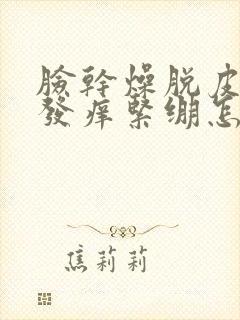 臉幹燥脱皮
發癢緊绷怎
焦莉莉